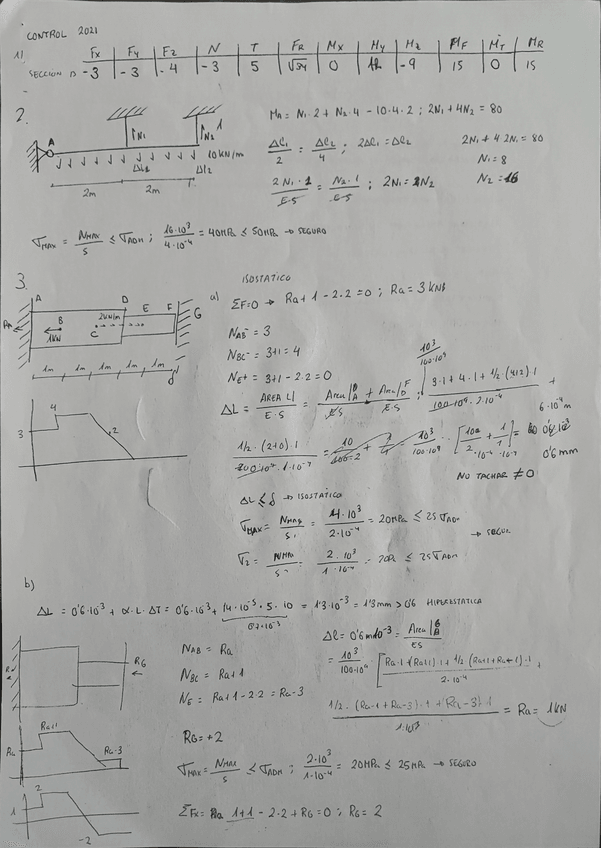 CONTROL 2021
1)
Fx Fy Fz N T FR Mx My Mz MF MT MR
SECCION D -3 -3 -4 -3 5 √34 0 12 -9 15 0 15
2.
A N1 N2 1
10 kN/m
Δl1 Δl2
2m 2m
MA = N1·2 + N2·4 - 10·4·2 ; 2N1 + 4N2 = 80
ΔL1/2 = ΔL2/4 ; 2ΔL1 = ΔL2
2N1·1/E·S = N2·1/E·S ; 2N1 = N2
2N1 + 4·2N1 = 80
N1 = 8
N2 = 16
σMAX = NMAX/S ≤ σADM ; 16·10³/4·10⁻⁴ = 40MPa ≤ 50MPa → SEGURO
3.
A B C D E F G
RA 1KN 2kN/m
1m 1m 1m 1m 1m δ
3 4 2
a)
ISOSTATICO
ΣF=0 → Ra + 1 - 2·2 = 0 ; Ra = 3 KN
NAB = 3
NBC = 3+1 = 4
NE+ = 3+1-2·2 = 0
ΔL = AREA L/E·S = Area/ES + Area/ES
10³/100·10⁹
3·1 + 4·1 + 1/2·(4+2)·1 / 100·10⁹·2·10⁻⁴ +
1/2·(2+0)·1 / 200·10⁹·1·10⁻⁴ = 10³/100·10⁹
6·10⁻⁴ m
0'6·10⁻³
0'6 mm
NO TACHAR ≠ 0
ΔL ≤ δ → ISOSTATICA
σMAX = NMAX/S = 4·10³/2·10⁻⁴ = 20MPa ≤ 25 σADM
→ SEGUR
σ2 = NMAX/S = 2·10³/1·10⁻⁴ = 20 ≤ 25 σADM
b)
ΔL = 0'6·10³ + α·L·ΔT = 0'6·10³ + 14·10⁻⁵·5·10 = 1'3·10⁻³ = 1'3mm > 0'6 HIPERESTATICA
0'7·10⁻³
RG
NAB = Ra
NBC = Ra+1
NE = Ra+1-2·2 = Ra-3
RG = +2
Δl = 0'6·10⁻³ = Area/ES
= 10³/100·10⁹ [Ra·1 + (Ra+1)·1 + 1/2 (Ra+1+Ra-1)·1 / 2·10⁻⁴ +
1/2·(Ra-1+Ra-3)·1 + (Ra-3)·1 / 1·10⁻⁴ = Ra = 1KN
Ra Ra+1 Ra-3
σMAX = NMAX/S ≤ σADM ; 2·10³/1·10⁻⁴ = 20MPa ≤ 25MPa → SEGURO
1 2 -2
ΣFx = 1+1 - 2·2 + RG = 0 ; RG = 2